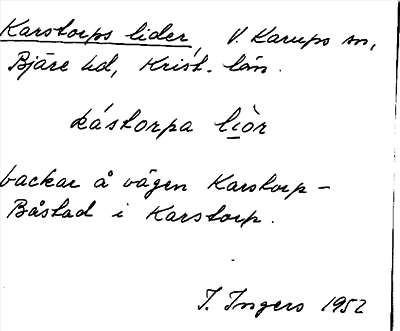 Karstorps lider, V. Karups sn,
Bjäre hd, Krist. län.
kástorpa lìòr
backar å vägen Karstorp –
Båstad i Karstorp.
I. Ingers 1952